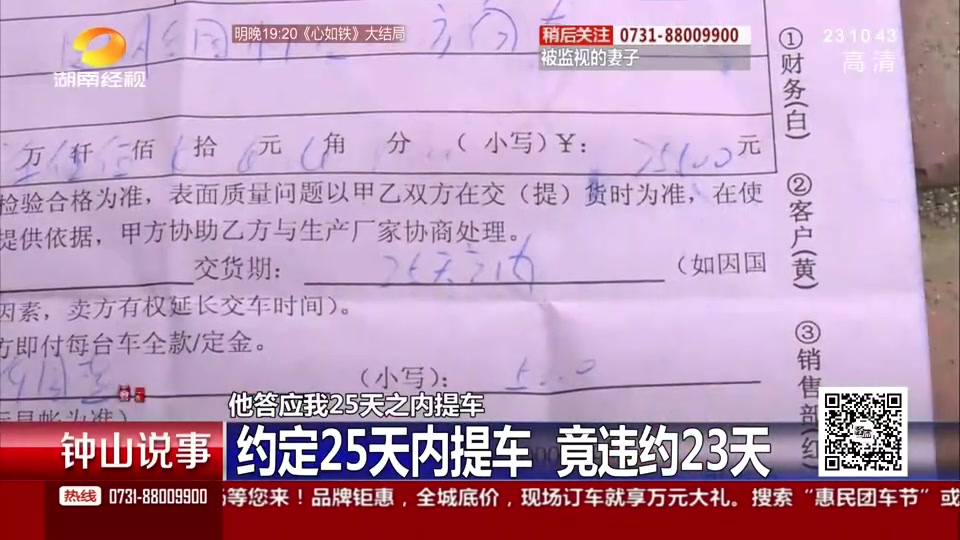 湖南经视
明晚19:20《心如铁》大结局
稍后关注 0731-88009900
被监视的妻子
23:10:43
高清
①财务(白)
万 仟 佰 拾 元 角 分 （小写）￥： 元
检验合格为准，表面质量问题以甲乙双方在交（提）货时为准，在使
提供依据，甲方协助乙方与生产厂家协商处理。
②客户(黄)
交货期： 25天之内 （如因国
因素，卖方有权延长交车时间）。
方即付每台车全款/定金。
（小写）： 5000
③销售部(红)
他答应我25天之内提车
钟山说事
约定25天内提车 竟违约23天
热线 0731-88009900
等您来！品牌钜惠，全城底价，现场订车就享万元大礼。搜索“惠民团车节”或